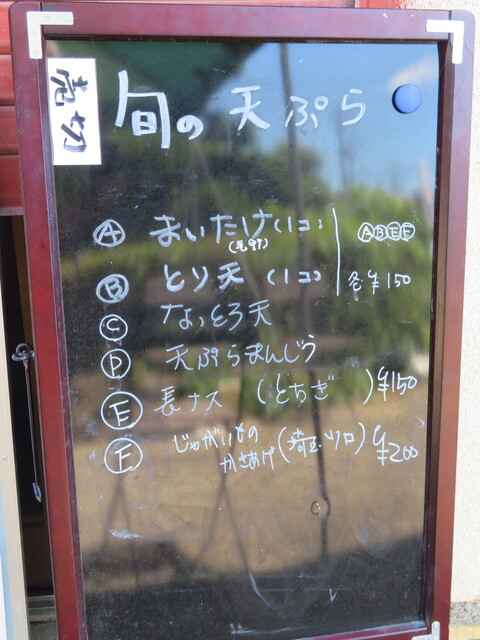 売切
旬の天ぷら
Ⓐ まいたけ(1コ) ⒶⒷⒺⒻ
Ⓑ とり天(1コ) 各¥150
Ⓒ なっとろ天
Ⓓ 天ぷらまんじう
Ⓔ 長ナス(とちぎ)¥150
Ⓕ じゃがいもの
かきあげ(埼玉・川口)¥200